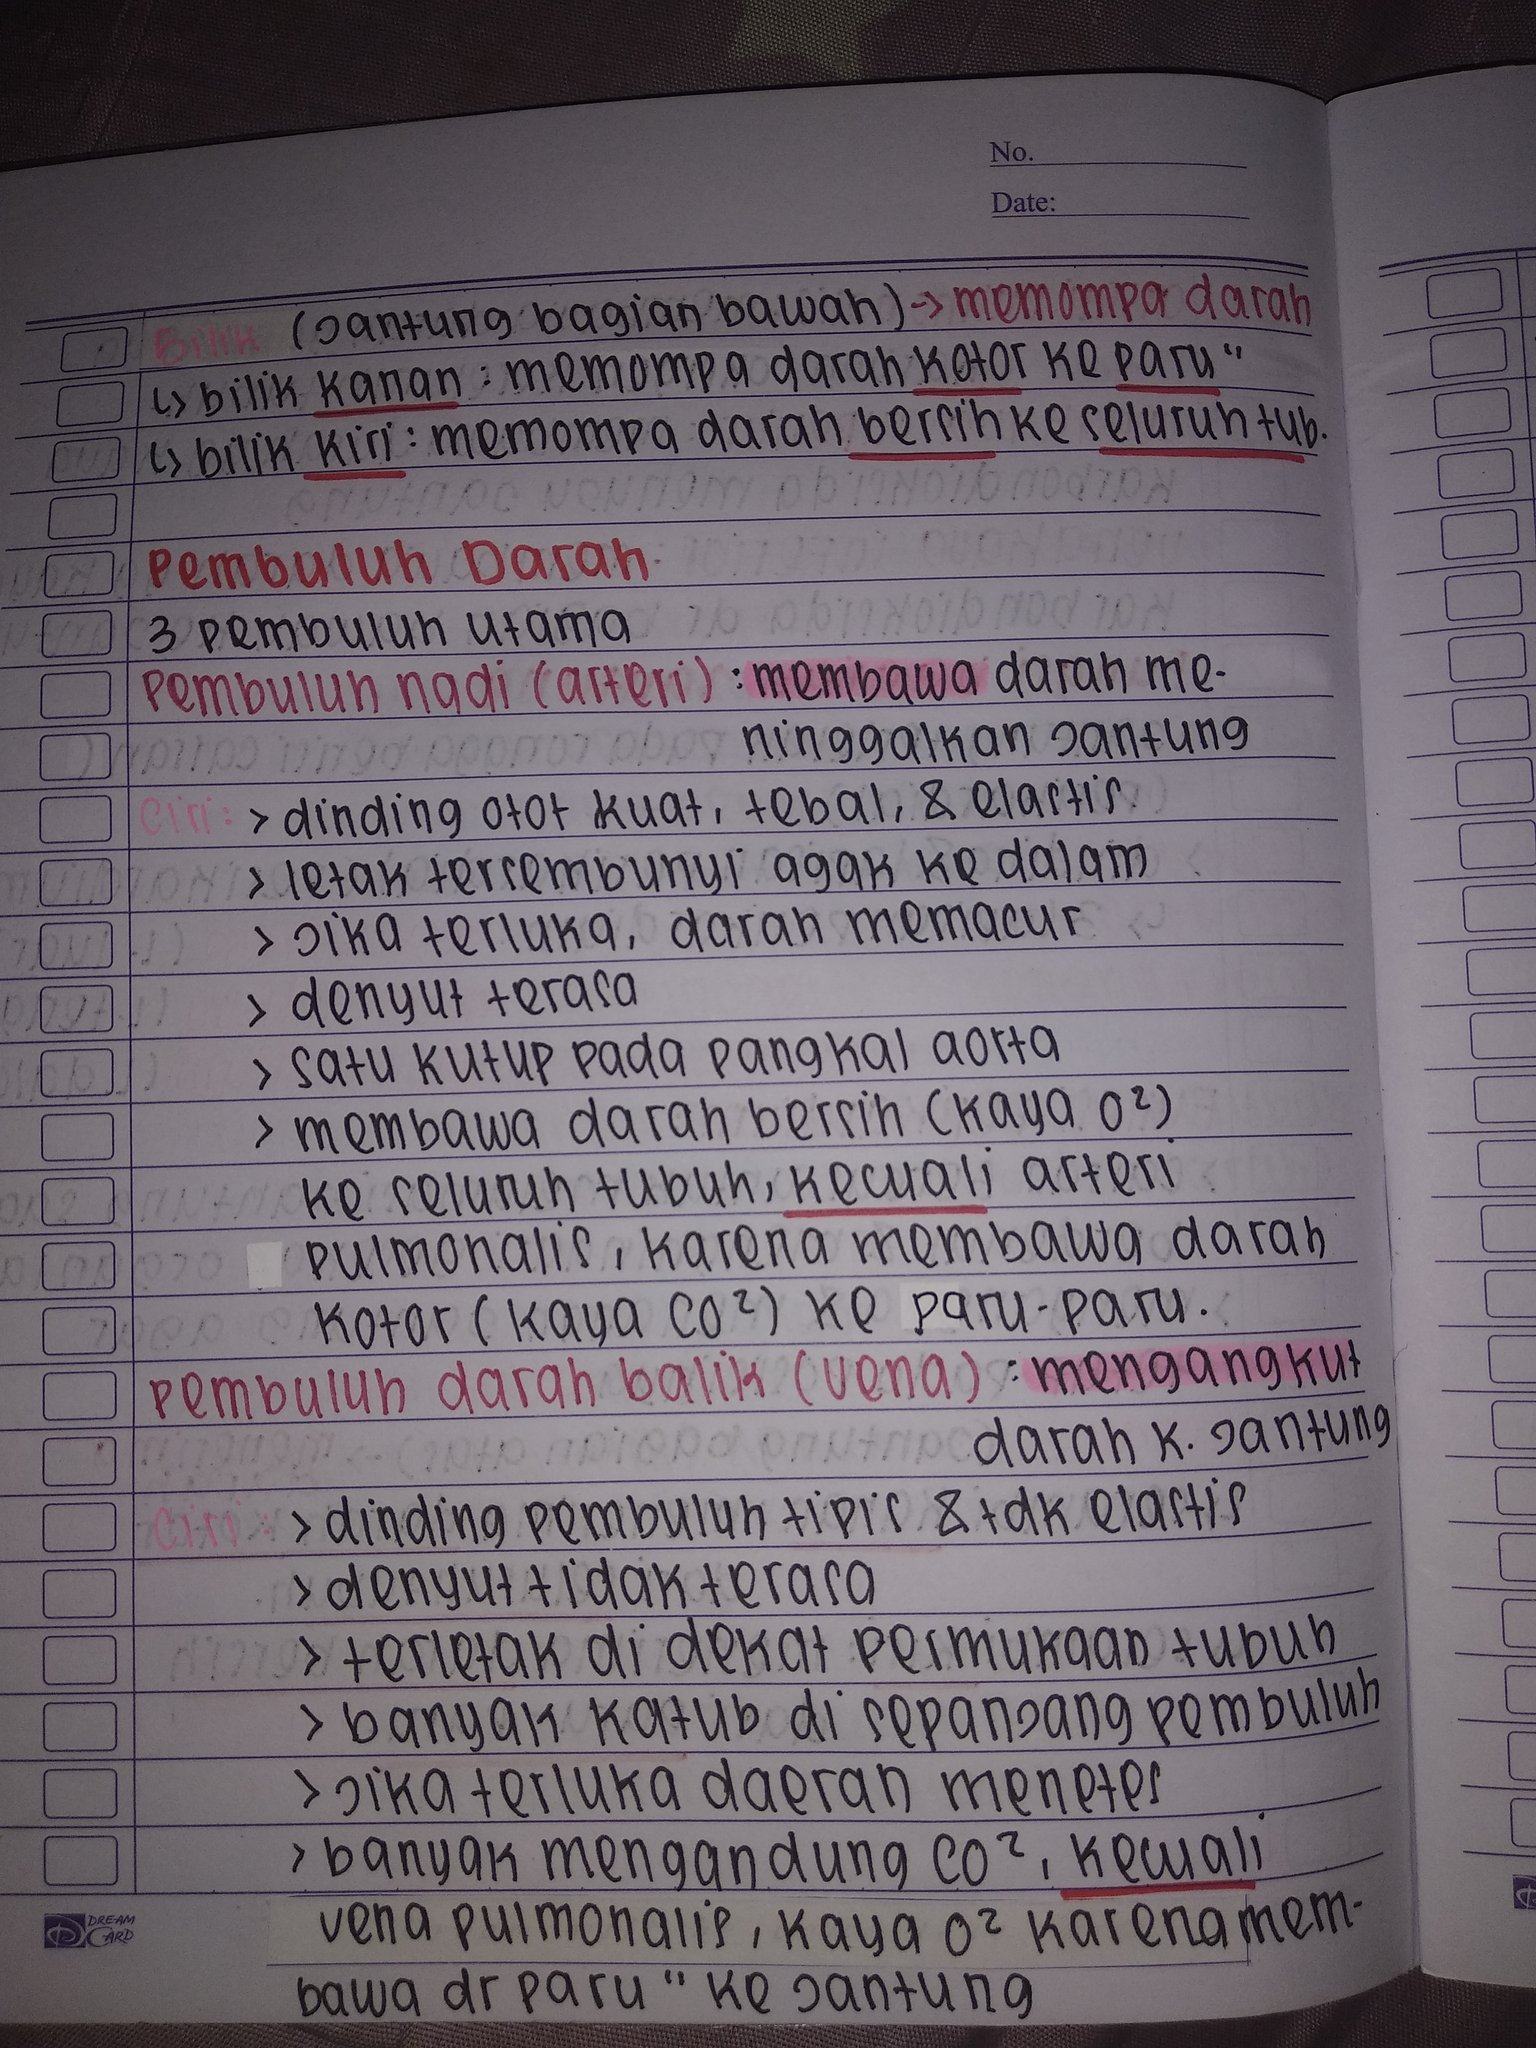 No.
Date:
Bilik (Jantung bagian bawah) -> memompa darah
↳ bilik kanan : memompa darah kotor ke paru"
↳ bilik kiri : memompa darah bersih ke seluruh tub.
Pembuluh Darah
3 pembuluh utama
Pembuluh nadi (arteri) : membawa darah me-
ninggalkan jantung
Ciri : > dinding otot kuat, tebal, & elastis
> letak tersembunyi agak ke dalam
> jika terluka, darah memacur
> denyut terasa
> satu kutup pada pangkal aorta
> membawa darah bersih (kaya O²)
ke seluruh tubuh, kecuali arteri
pulmonalis, karena membawa darah
kotor (kaya CO²) ke paru-paru.
Pembuluh darah balik (vena) : mengangkut
darah k. jantung
Ciri : > dinding pembuluh tipis & tdk elastis
> denyut tidak terasa
> terletak di dekat permukaan tubuh
> banyak katub di sepanjang pembuluh
> jika terluka daerah menetes
> banyak mengandung CO², kecuali
vena pulmonalis, kaya O² karena mem-
bawa dr paru" ke jantung
DREAM CARD